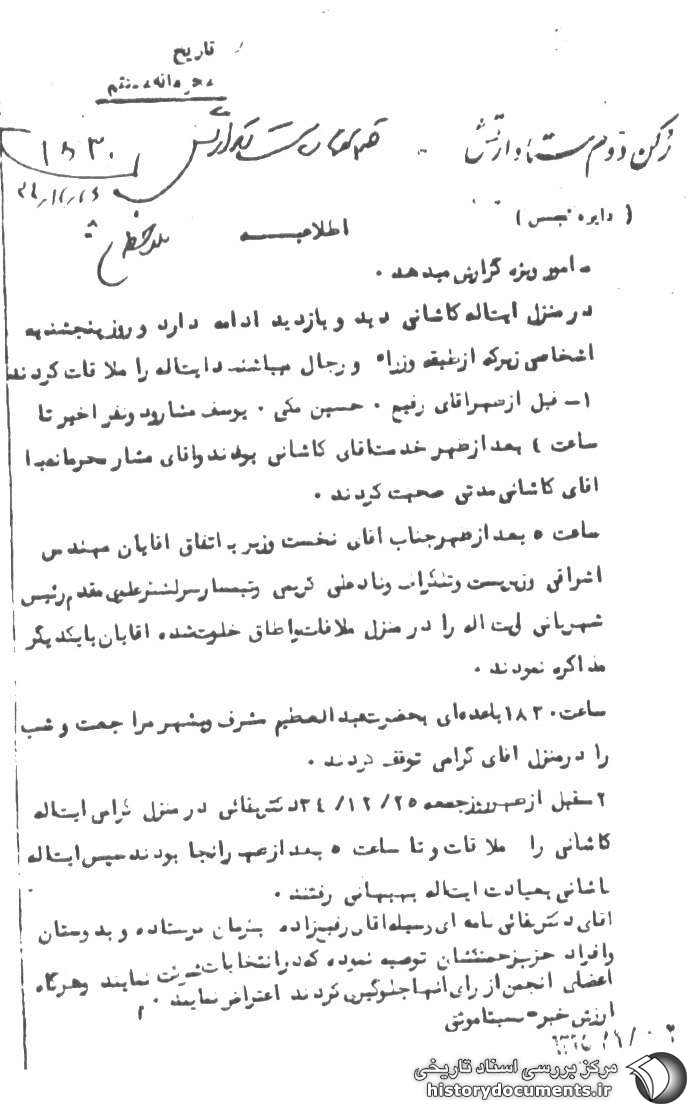 تاریخ
رکن دوم ستاد ارتش
۱۵۳۰
( دایره تجسس )
اطلاعیه
مامور ویژه گزارش میدهد .
در منزل ایتاله کاشانی دید و بازدید ادامه دارد و روز پنجشنبه
اشخاصی زیرکه از طبقه وزراء و رجال میباشند ایتاله را ملاقات کردند
۱- قبل از ظهر اقای رفیع . حسین مکی . یوسف مشار و دو نفر اخیر تا
ساعت بعد از ظهر خدمت اقای کاشانی بودند واقای مشار محرمانه با
اقای کاشانی مدتی صحبت کردند .
ساعت ۵ بعد از ظهر جناب اقای نخست وزیر باتفاق اقایان مهندس
اشراقی وزیر پست وتلگراف ونادعلی کریمی وتیمسار سرلشگر علوی مقدم رئیس
شهربانی ایت اله را در منزل ملاقات واطاق خلوت شده اقایان با یکدیگر
مذاکره نمودند .
ساعت ۱۸۳۰ باعده‌ای بحضرت عبدالعظیم مشرف وبشهر مراجعت و شب
را در منزل اقای گرامی توقف کردند .
۲- قبل از ظهر روز جمعه ۳٤/۱۲/۲۵ دکتر بقائی در منزل گرامی ایتاله
کاشانی را ملاقات و تا ساعت ۵ بعد از ظهر درانجا بودند سپس ایتاله
کاشانی بعیادت ایتاله بهبهانی رفتند .
اقای دکتر بقائی نامه ای بوسیله اقای رفیع زاده بکرمان فرستاده و بدوستان
وافراد حزب زحمتکشان توصیه نموده که در انتخابات شرکت نمایند وهرگاه
اعضای انجمن از رای انها جلوگیری کردند اعتراض نمایند .
ارزش خبر =
مرکز بررسی اسناد تاریخی
historydocuments.ir